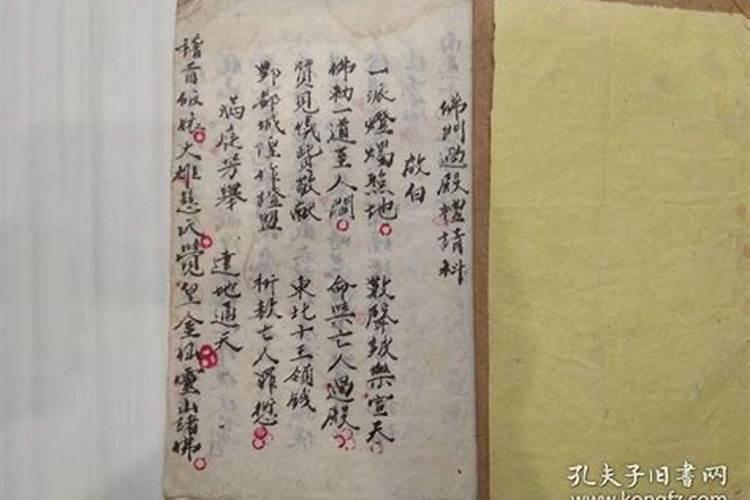 佛判過殿禮請科
啟白
一派燈燭照地 數聲鼓樂宣天
佛勅一道至人間 命與亡人過殿
賢見儀貲敬献 東北十王領錢
酆都城隍作證盟 折赦亡人罪愆
滿庭芳舉 達地通天
稽首皈依大雄慈氏覺皇金仙靈山諸佛
孔夫子旧书网
www.kongfz.com